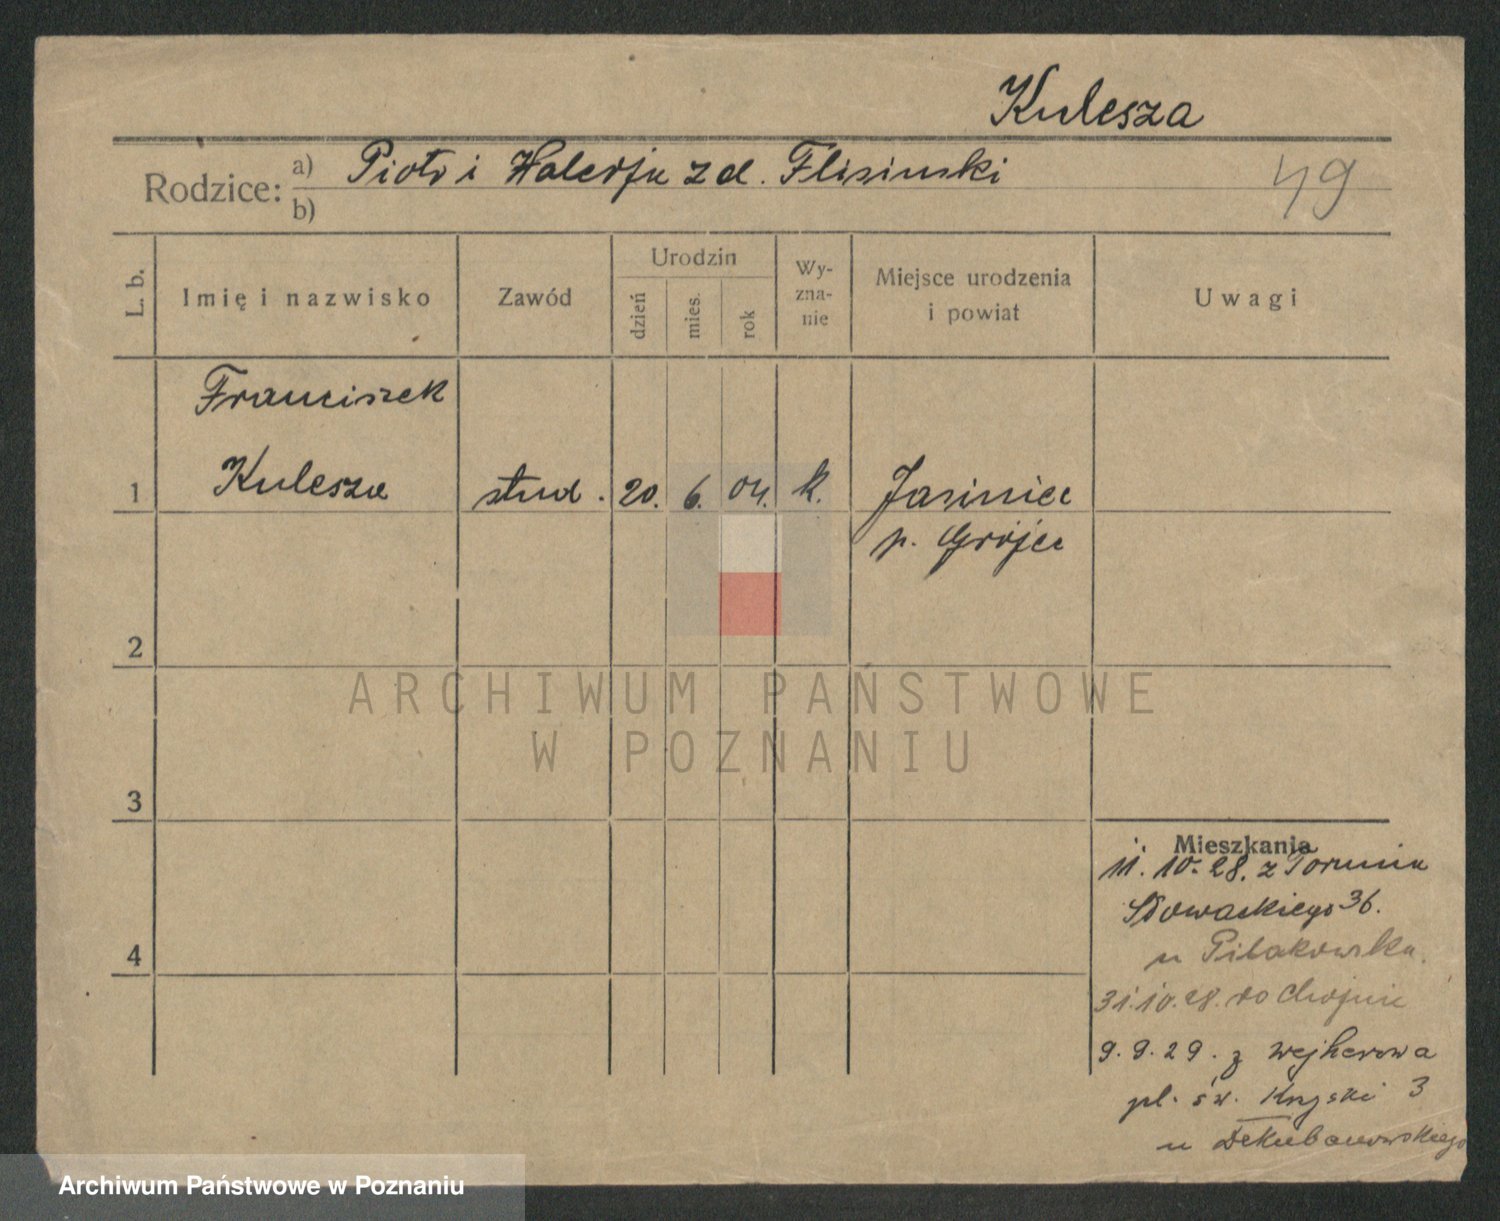 Kulesza
Rodzice: a) Piotr i Walerja z d. Flisinski
b)
49
L. b.
Imię i nazwisko
Zawód
Urodzin
dzień
mies.
rok
Wy-
zna-
nie
Miejsce urodzenia
i powiat
Uwagi
Franciszek
1 Kulesza stud. 20. 6. 04. k. Jasiniec
p. Grójec
2
3
4
Mieszkania
11. 10. 28. z Torunia
Słowackiego 36.
u Pilakowska.
31.10.28. do Chojnic
9. 9. 29. z Wejherowa
pl. św. Krzyski 3
u
ARCHIWUM PAŃSTWOWE
W POZNANIU
Archiwum Państwowe w Poznaniu